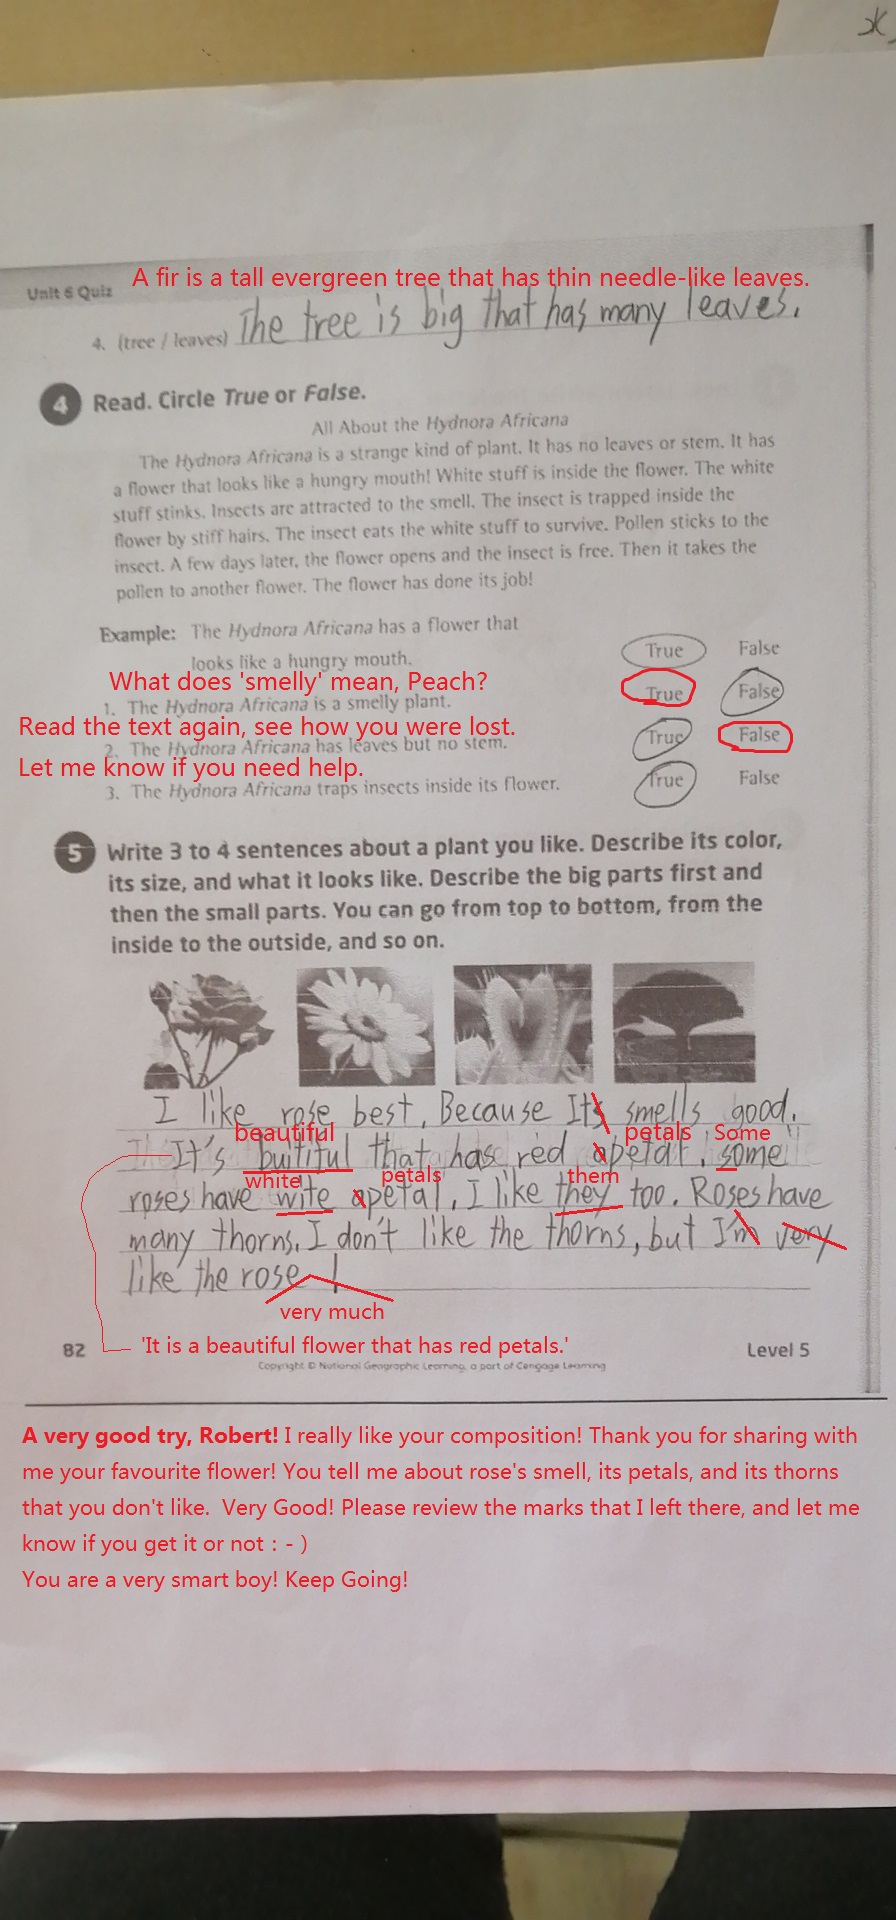 A fir is a tall evergreen tree that has thin needle-like leaves.
Unit 6 Quiz
4. (tree / leaves) The tree is big that has many leaves.
4 Read. Circle True or False.
All About the Hydnora Africana
The Hydnora Africana is a strange kind of plant. It has no leaves or stem. It has
a flower that looks like a hungry mouth! White stuff is inside the flower. The white
stuff stinks. Insects are attracted to the smell. The insect is trapped inside the
flower by stiff hairs. The insect eats the white stuff to survive. Pollen sticks to the
insect. A few days later, the flower opens and the insect is free. Then it takes the
pollen to another flower. The flower has done its job!
Example: The Hydnora Africana has a flower that
looks like a hungry mouth. True False
What does 'smelly' mean, Peach?
1. The Hydnora Africana is a smelly plant. True False
Read the text again, see how you were lost.
2. The Hydnora Africana has leaves but no stem. True False
Let me know if you need help.
3. The Hydnora Africana traps insects inside its flower. True False
5 Write 3 to 4 sentences about a plant you like. Describe its color,
its size, and what it looks like. Describe the big parts first and
then the small parts. You can go from top to bottom, from the
inside to the outside, and so on.
I like rose best. Because Its smells good.
beautiful petals Some
It's buitiful that has red apetal, some
white petals them
roses have wite apetal, I like they too. Roses have
many thorns. I don't like the thorns, but I'm very
like the rose !
very much
'It is a beautiful flower that has red petals.'
82 Level 5
Copyright © National Geographic Learning, a part of Cengage Learning
A very good try, Robert! I really like your composition! Thank you for sharing with
me your favourite flower! You tell me about rose's smell, its petals, and its thorns
that you don't like. Very Good! Please review the marks that I left there, and let me
know if you get it or not : - )
You are a very smart boy! Keep Going!